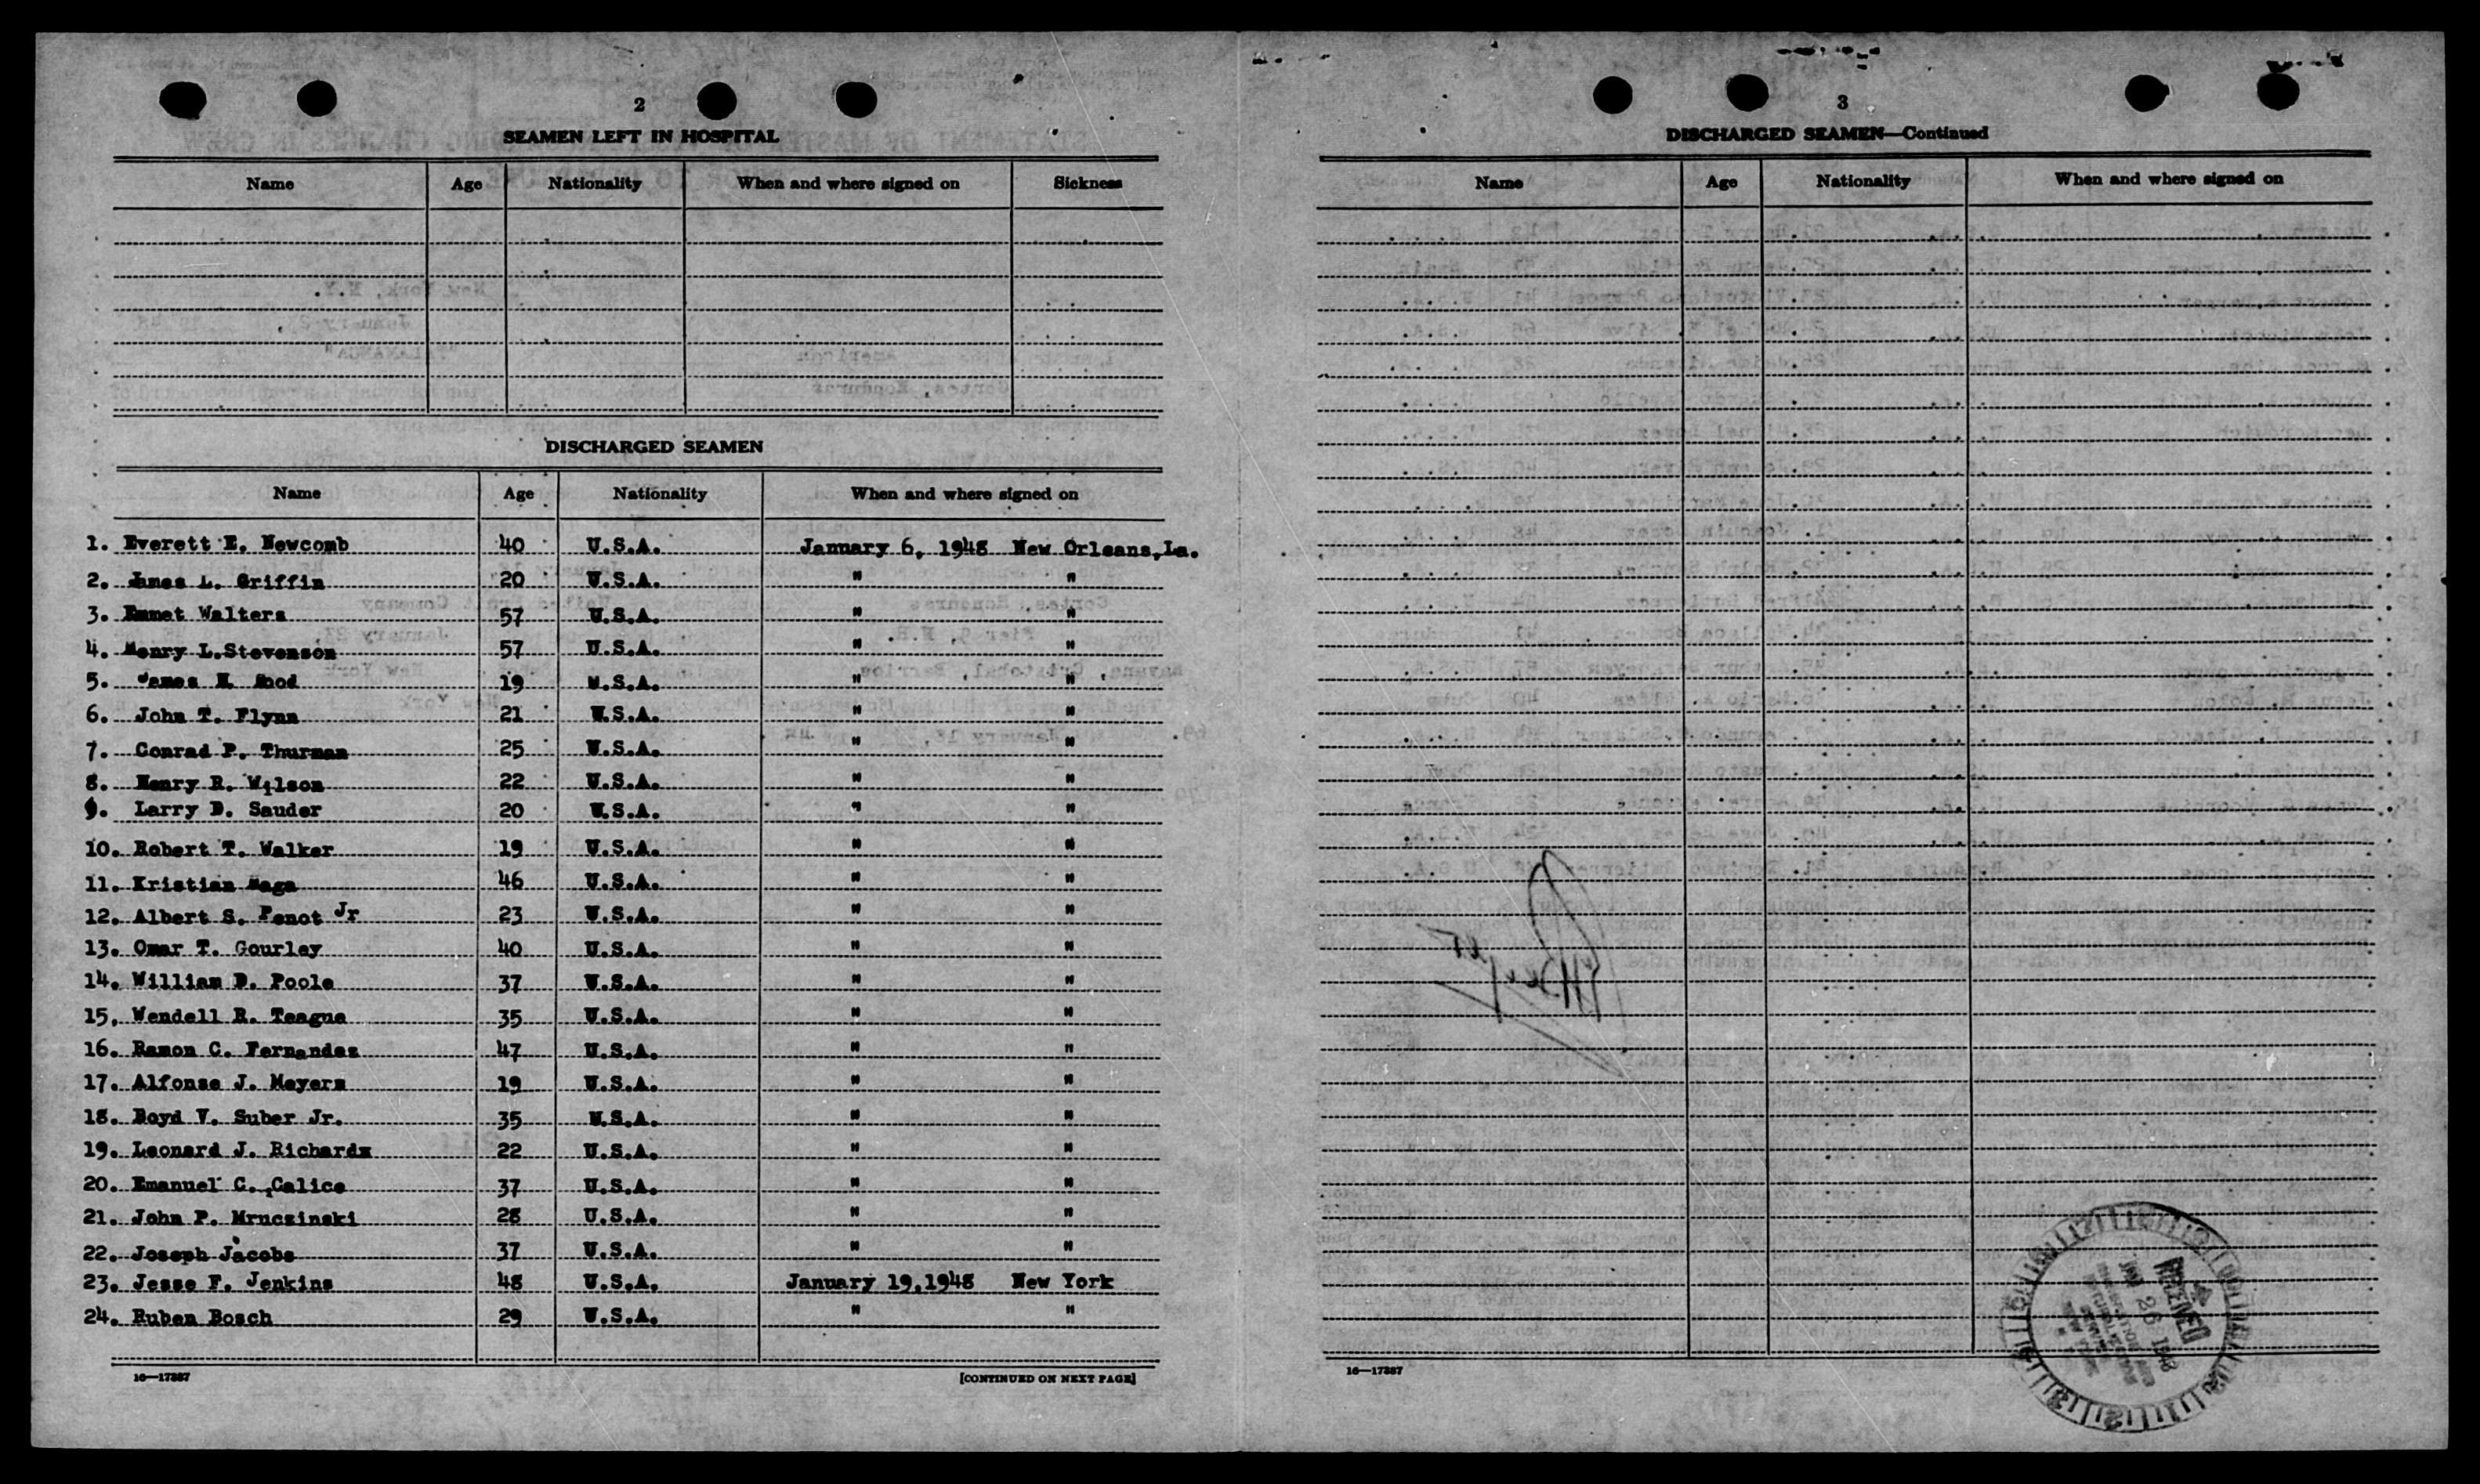 2
SEAMEN LEFT IN HOSPITAL
Name Age Nationality When and where signed on Sickness
DISCHARGED SEAMEN
Name Age Nationality When and where signed on
1. Everett E. Newcomb 40 U.S.A. January 6, 1948 New Orleans, La.
2. James L. Griffin 20 U.S.A. " "
3. Emmet Walters 57 U.S.A. " "
4. Henry L. Stevenson 57 U.S.A. " "
5. James H. 19 U.S.A. " "
6. John T. Flynn 21 U.S.A. " "
7. Conrad P. Thurman 25 U.S.A. " "
8. Henry R. Wilson 22 U.S.A. " "
9. Larry D. Sauder 20 U.S.A. " "
10. Robert T. Walker 19 U.S.A. " "
11. Kristian 46 U.S.A. " "
12. Albert S. Penot Jr 23 U.S.A. " "
13. Omar T. Gourley 40 U.S.A. " "
14. William D. Poole 37 U.S.A. " "
15. Wendell R. Teague 35 U.S.A. " "
16. Ramon C. Fernandez 47 U.S.A. " "
17. Alfonse J. Meyers 19 U.S.A. " "
18. Boyd V. Suber Jr. 35 U.S.A. " "
19. Leonard J. Richards 22 U.S.A. " "
20. Emanuel C. Calice 37 U.S.A. " "
21. John P. Mruczinski 28 U.S.A. " "
22. Joseph Jacobs 37 U.S.A. " "
23. Jesse F. Jenkins 48 U.S.A. January 19, 1948 New York
24. Ruben Bosch 29 U.S.A. " "
16—17387
[CONTINUED ON NEXT PAGE]
3
DISCHARGED SEAMEN—Continued
Name Age Nationality When and where signed on
RECEIVED
JAN 26 1948
16—17387